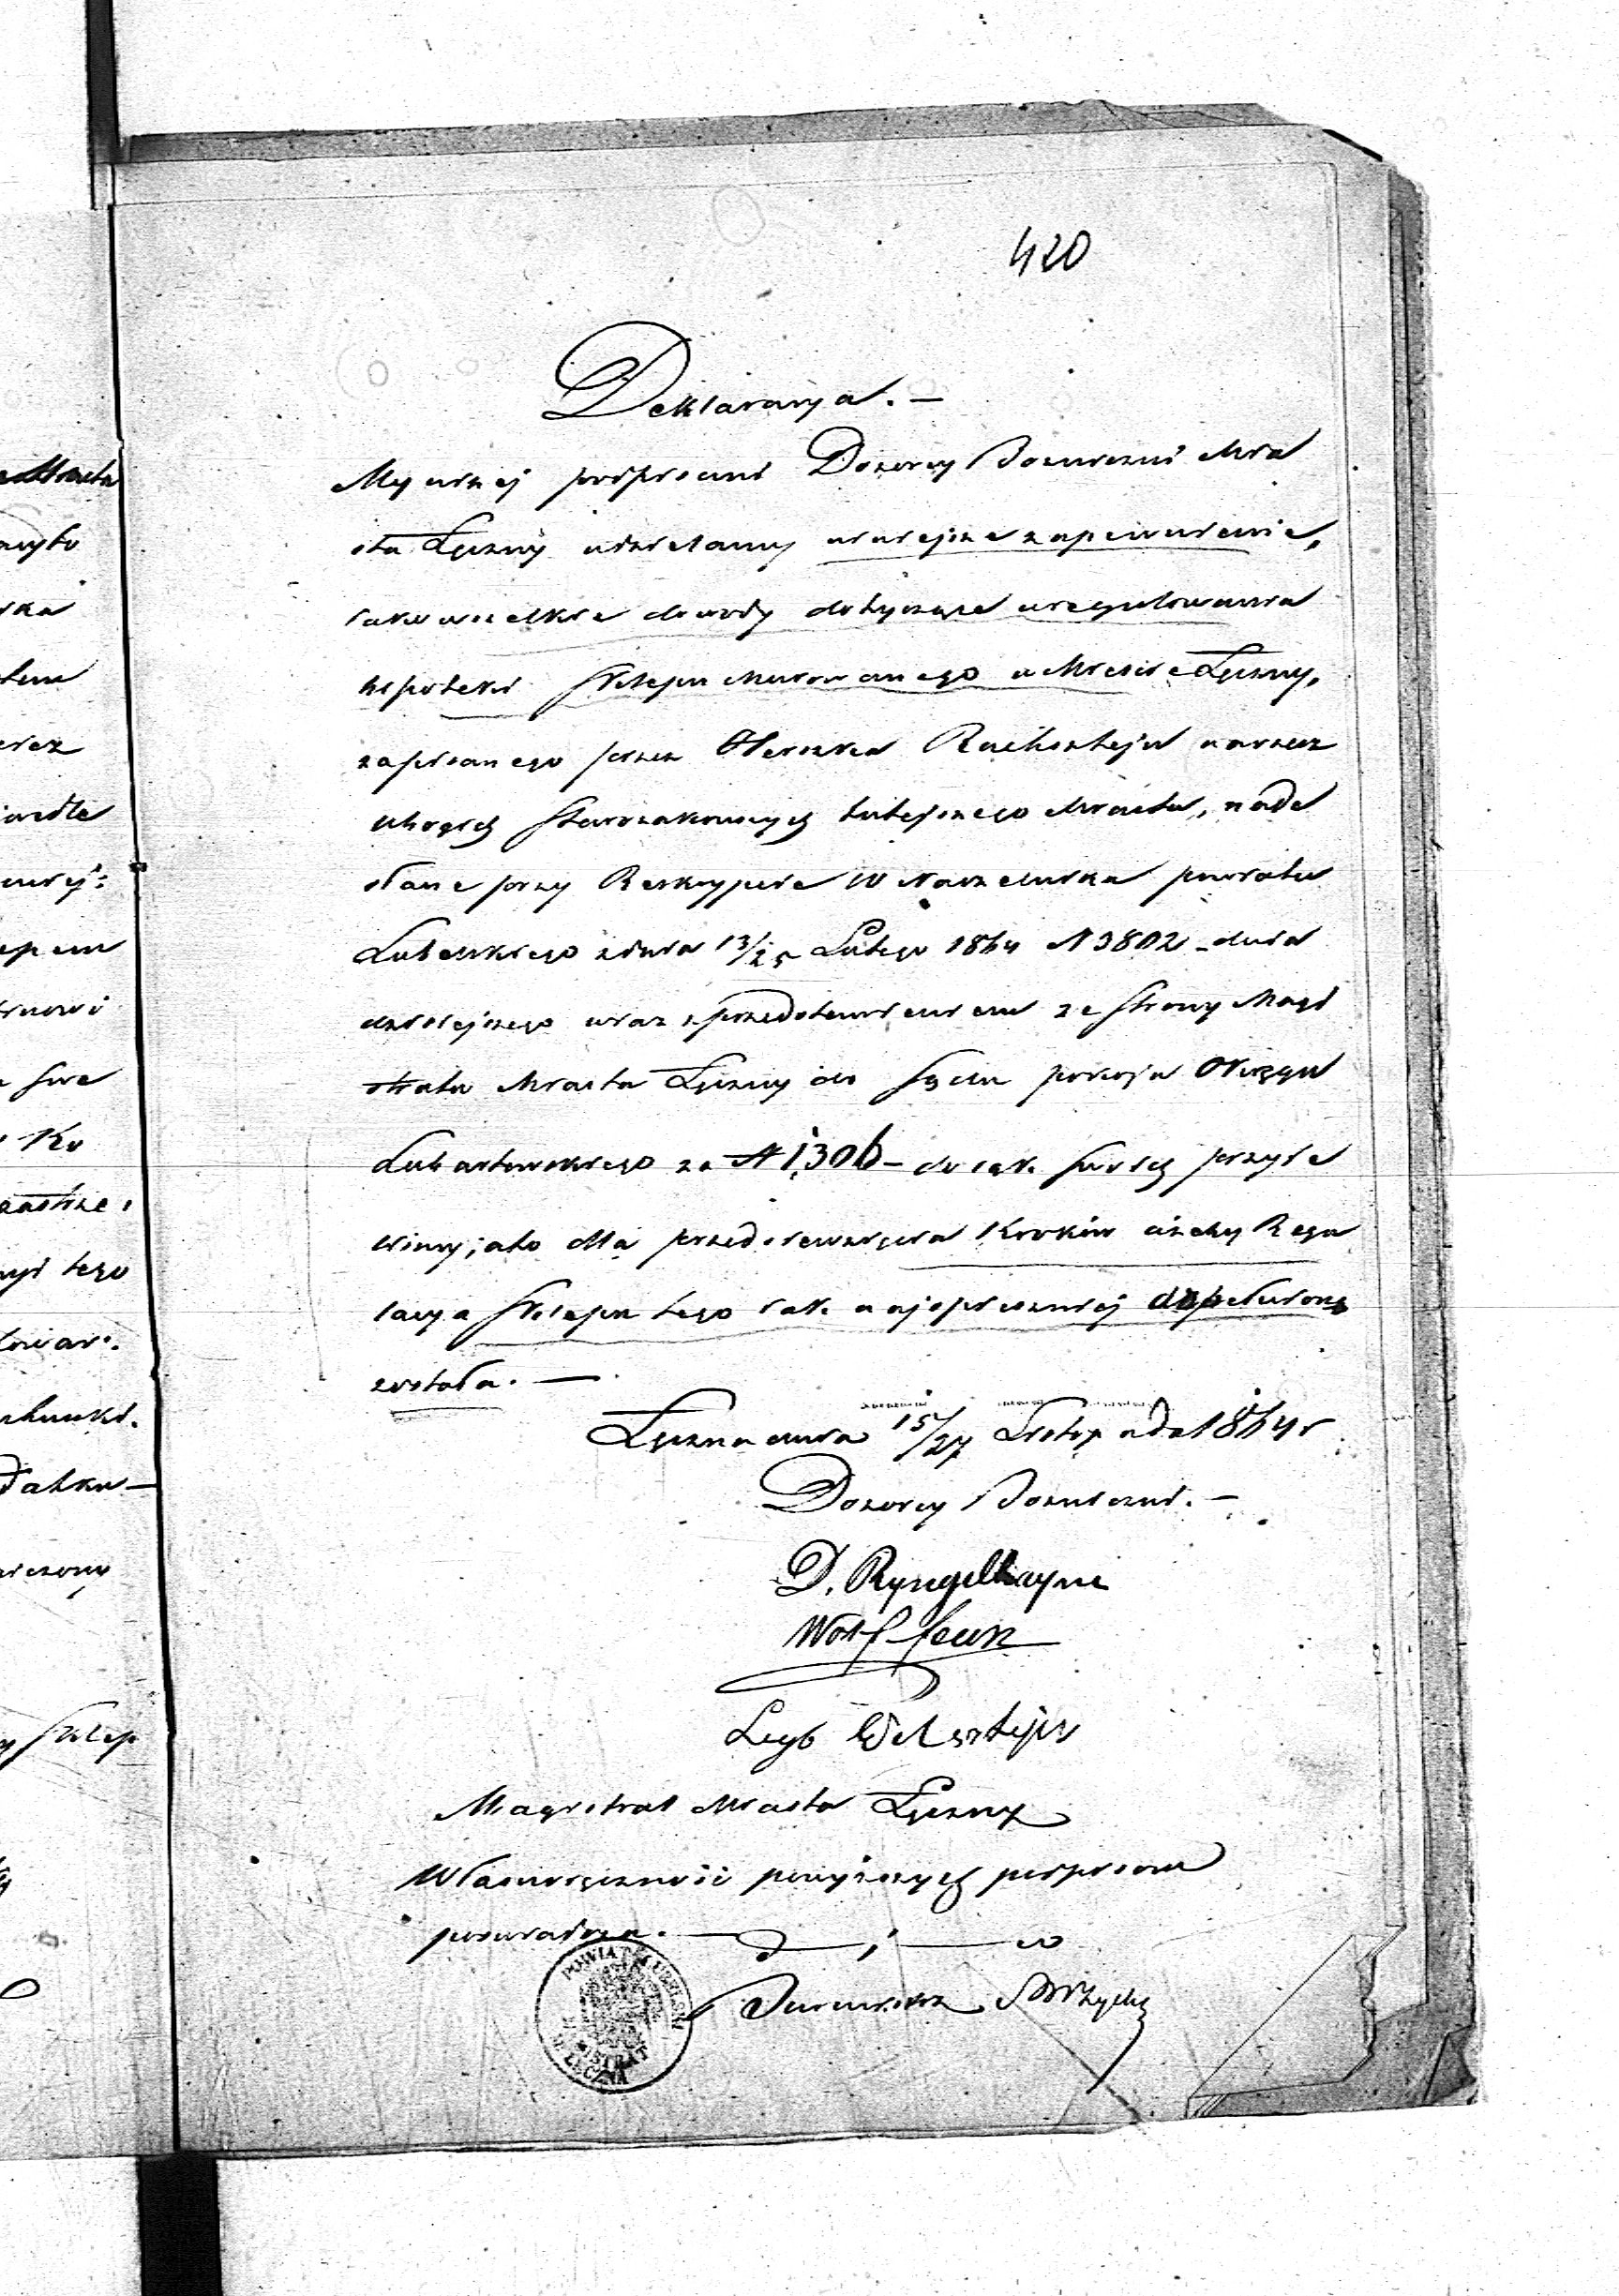 420
Deklaracya. —
My niżej podpisani Dozorcy Bóżniczni Mia
sta Łęczny udzielamy niniejsze zapewnienie,
iako wszelkie dowody dotyczące uregulowania
hipoteki Sklepu murowanego w Mieście Łęczny,
zapisanego przez Herszka Rachsztejn na rzecz
ubogich Starozakonnych tutejszego Miasta, nade
słane przy Reskrypcie W Naczelnika powiatu
Lubelskiego z dnia 13/25 Lutego 1864 N 3802 – dnia
dzisiejszego wraz z przedstawieniem ze strony Magi
stratu Miasta Łęczny do Sądu pokoju Okręgu
Lubartowskiego za N 1306 – do rąk swoich przyję
liśmy, jako dla przedsięwzięcia kroków ażeby Regu
lacya Sklepu tego iak najspieszniej dopełnioną
została. —
Łęczna dnia 15/27 Listopada 1864 r
Dozorcy Bóżniczni. —
D. Ryngelhaym
Wolf
Leyb Edelsztejn
Magistrat Miasta Łęczny
Własnoręczność powyższych podpisów
poświadcza. —
Burmistrz
POWIAT LUBELSKI
MAGISTRAT
M. ŁĘCZNA
Miasta
tem
Ko
tego
Sklep